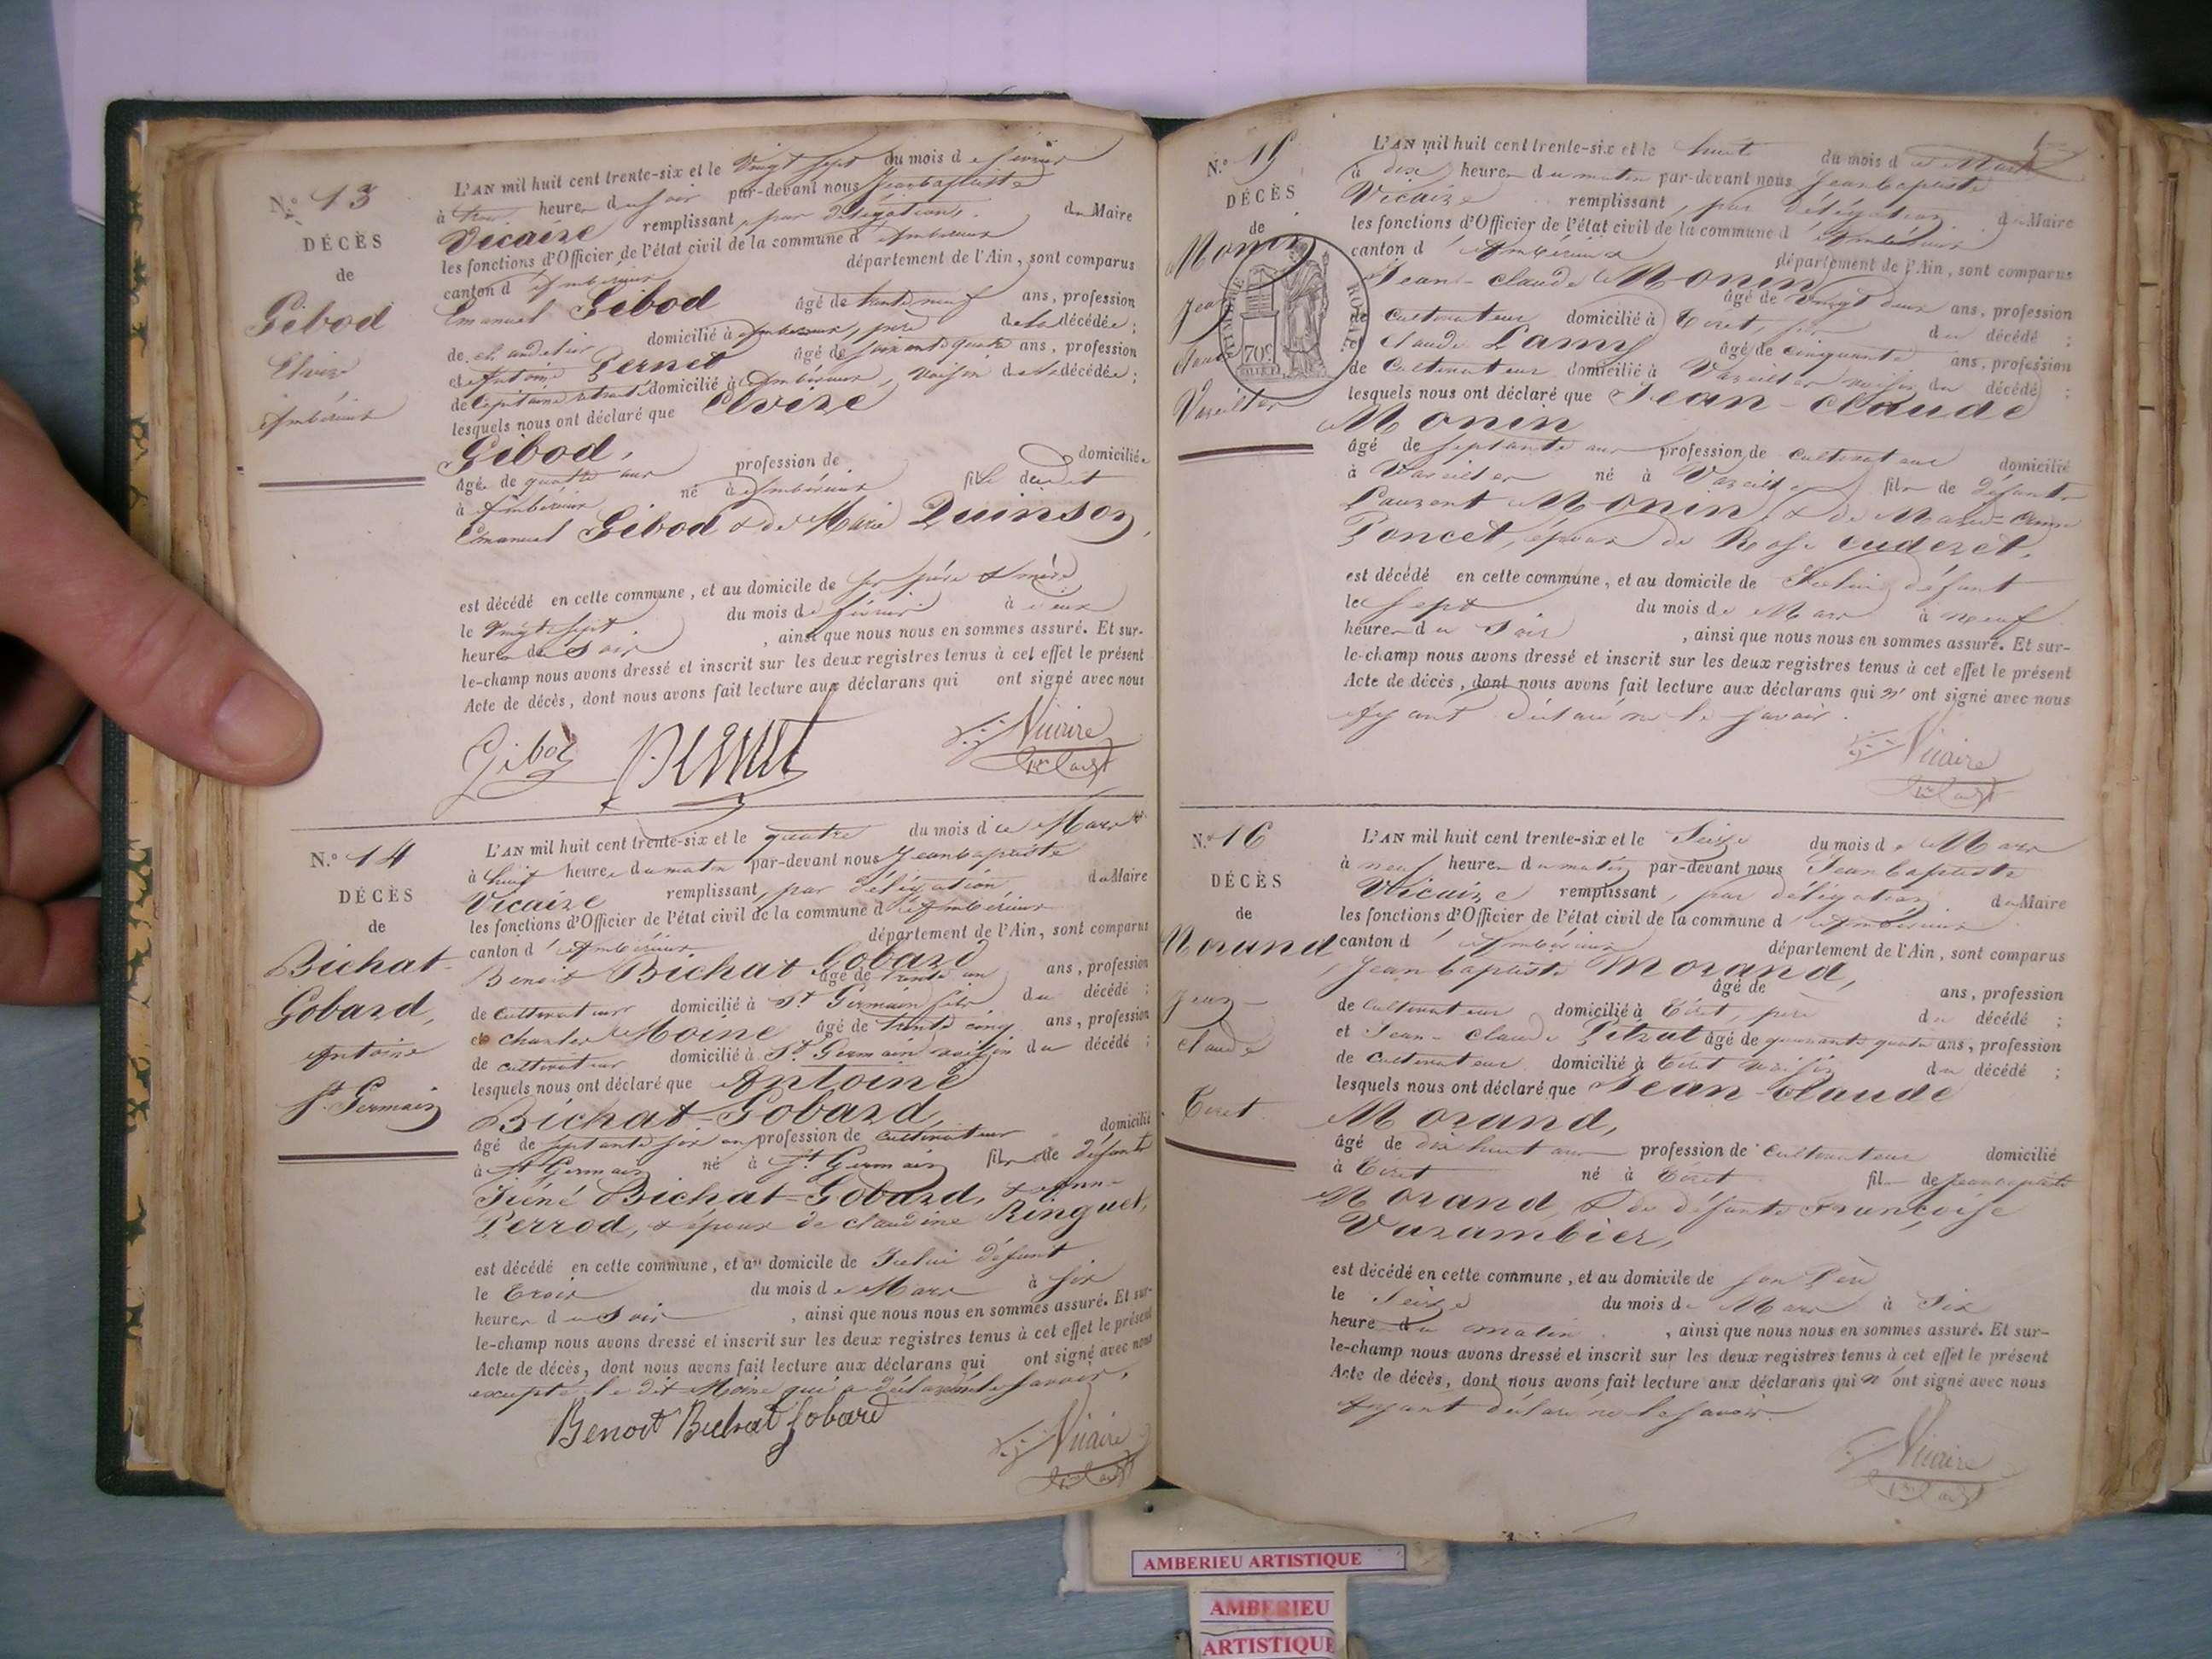 N.° 13
DÉCÈS
de
Gibod
Elvire
Ambérieux
L'AN mil huit cent trente-six et le Vingt sept du mois de février
à trois heures du soir par-devant nous Jeanbaptiste
Vicaire remplissant, par délégation, du Maire
les fonctions d'Officier de l'état civil de la commune d'Ambérieux
canton d'Ambérieux département de l'Ain, sont comparus
Emanuel Gibod âgé de trente neuf ans, profession
de chandelier domicilié à Ambérieux, père de la décédée;
et Antoine Pernet âgé de soixante quatre ans, profession
de Capitaine retraité domicilié à Ambérieux, voisin de la décédée;
lesquels nous ont déclaré que Elvire
Gibod,
âgée de quatre ans profession de domiciliée
à Ambérieux né à Ambérieux fille dudit
Emanuel Gibod & de Marie Quinson,
est décédé en cette commune, et au domicile de ses père & mère
le Vingt sept du mois de février à deux
heures du Soir, ainsi que nous nous en sommes assuré. Et sur-
le-champ nous avons dressé et inscrit sur les deux registres tenus à cet effet le présent
Acte de décès, dont nous avons fait lecture aux déclarans qui ont signé avec nous
Gibod Pernet Vicaire
N.° 14
DÉCÈS
de
Bichat-
Gobard,
Antoine
St. Germain
L'AN mil huit cent trente-six et le quatre du mois de Mars
à huit heures du matin par-devant nous Jeanbaptiste
Vicaire remplissant, par délégation du Maire
les fonctions d'Officier de l'état civil de la commune d'Ambérieux
canton d'Ambérieux département de l'Ain, sont comparus
Benoit Bichat Gobard âgé de trente un ans, profession
de cultivateur domicilié à St Germain fils du décédé;
et charles Moine âgé de trente cinq ans, profession
de cultivateur domicilié à St Germain voisin du décédé;
lesquels nous ont déclaré que Antoine
Bichat-Gobard,
âgé de septante six ans profession de cultivateur domicilié
à St Germain né à St. Germain fils de défunts
Bichat-Gobard, & Anne
Perrod, & époux de claudine Ringuet,
est décédé en cette commune, et au domicile de Icelui défunt
le Trois du mois de Mars à six
heures du Soir, ainsi que nous nous en sommes assuré. Et sur-
le-champ nous avons dressé et inscrit sur les deux registres tenus à cet effet le présent
Acte de décès, dont nous avons fait lecture aux déclarans qui ont signé avec nous
excepté le dit Moine qui a déclaré ne le savoir.
Benoit Bichat Gobard Vicaire
N.° 15
DÉCÈS
de
Monin
Jean
Claude
Vareilles
TIMBRE ROYAL
70c
L'AN mil huit cent trente-six et le huit du mois de Mars
à dix heures du matin par-devant nous Jeanbaptiste
Vicaire remplissant, par délégation du Maire
les fonctions d'Officier de l'état civil de la commune d'Ambérieux
canton d'Ambérieux département de l'Ain, sont comparus
Jean-claude Monin âgé de vingt deux ans, profession
de cultivateur domicilié à Tiret, fils du décédé;
Claude Lamy âgé de cinquante ans, profession
de Cultivateur domicilié à Vareilles voisin du décédé;
lesquels nous ont déclaré que Jean-claude
Monin
âgé de septante ans profession de cultivateur domicilié
à Vareilles né à Vareilles fils de défunts
Laurent Monin, & de Marie-Anne
Poncet, époux de Rose cuderet.
est décédé en cette commune, et au domicile de Icelui défunt
le Sept du mois de Mars à neuf
heures du Soir, ainsi que nous nous en sommes assuré. Et sur-
le-champ nous avons dressé et inscrit sur les deux registres tenus à cet effet le présent
Acte de décès, dont nous avons fait lecture aux déclarans qui n'ont signé avec nous
Ayant déclaré ne le savoir.
Vicaire
N.° 16
DÉCÈS
de
Morand
Jean-
claude
Tiret
L'AN mil huit cent trente-six et le Seize du mois de Mars
à neuf heures du matin par-devant nous Jeanbaptiste
Vicaire remplissant, par délégation du Maire
les fonctions d'Officier de l'état civil de la commune d'Ambérieux
canton d'Ambérieux département de l'Ain, sont comparus
Jeanbaptiste Morand, âgé de ans, profession
de Cultivateur domicilié à Tiret, père du décédé;
et Jean-claude Pitrat âgé de quarante quatre ans, profession
de cultivateur domicilié à Tiret voisin du décédé;
lesquels nous ont déclaré que Jean-claude
Morand,
âgé de dix huit ans profession de Cultivateur domicilié
à Tiret né à Tiret fils de Jeanbaptiste
Morand, & de défunte Françoise
Varambier,
est décédé en cette commune, et au domicile de son Père
le Seize du mois de Mars à Six
heures du matin, ainsi que nous nous en sommes assuré. Et sur-
le-champ nous avons dressé et inscrit sur les deux registres tenus à cet effet le présent
Acte de décès, dont nous avons fait lecture aux déclarans qui n'ont signé avec nous
Ayant déclaré ne le savoir.
Vicaire
AMBERIEU ARTISTIQUE
AMBERIEU
ARTISTIQUE